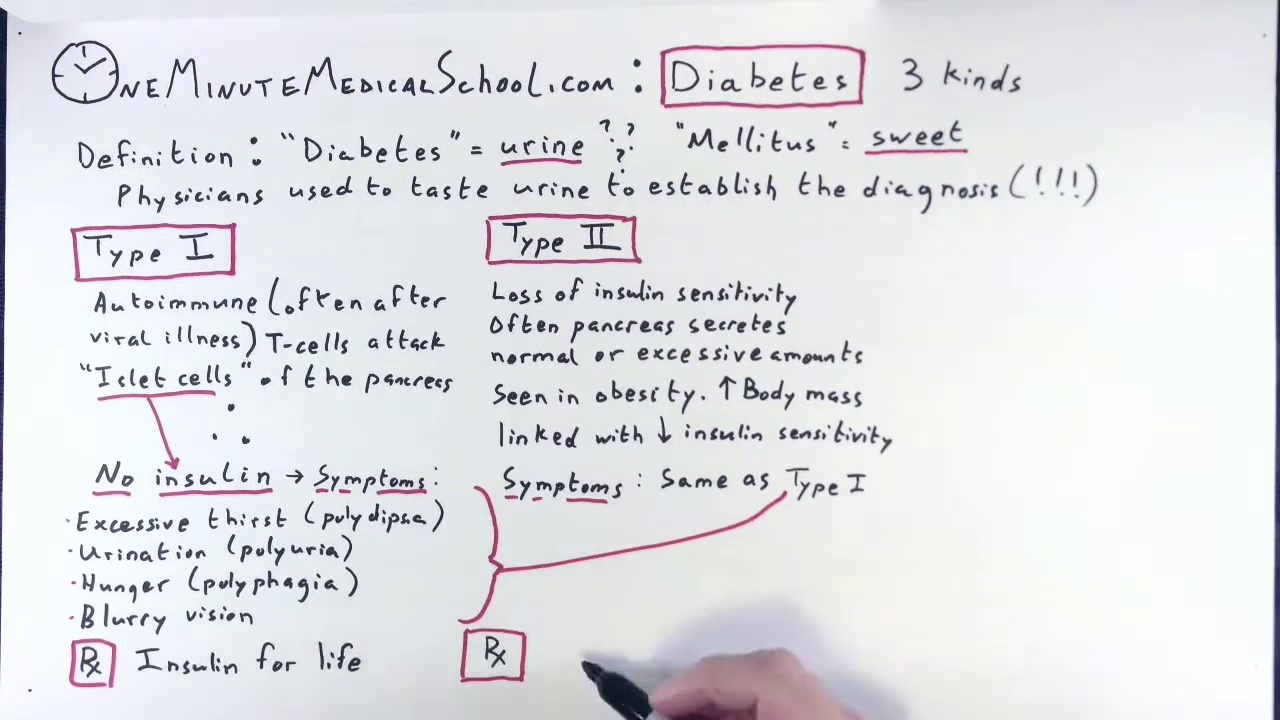 OneMinuteMedicalSchool.com : Diabetes 3 kinds
Definition : "Diabetes" = urine ? ? ? "Mellitus" = sweet
Physicians used to taste urine to establish the diagnosis (!!!)
Type I
Autoimmune (often after
viral illness) T-cells attack
"Islet cells" of the pancreas
No insulin → Symptoms:
· Excessive thirst (polydipsia)
· Urination (polyuria)
· Hunger (polyphagia)
· Blurry vision
Rx Insulin for life
Type II
Loss of insulin sensitivity
Often pancreas secretes
normal or excessive amounts
Seen in obesity. ↑ Body mass
linked with ↓ insulin sensitivity
Symptoms : Same as Type I
Rx